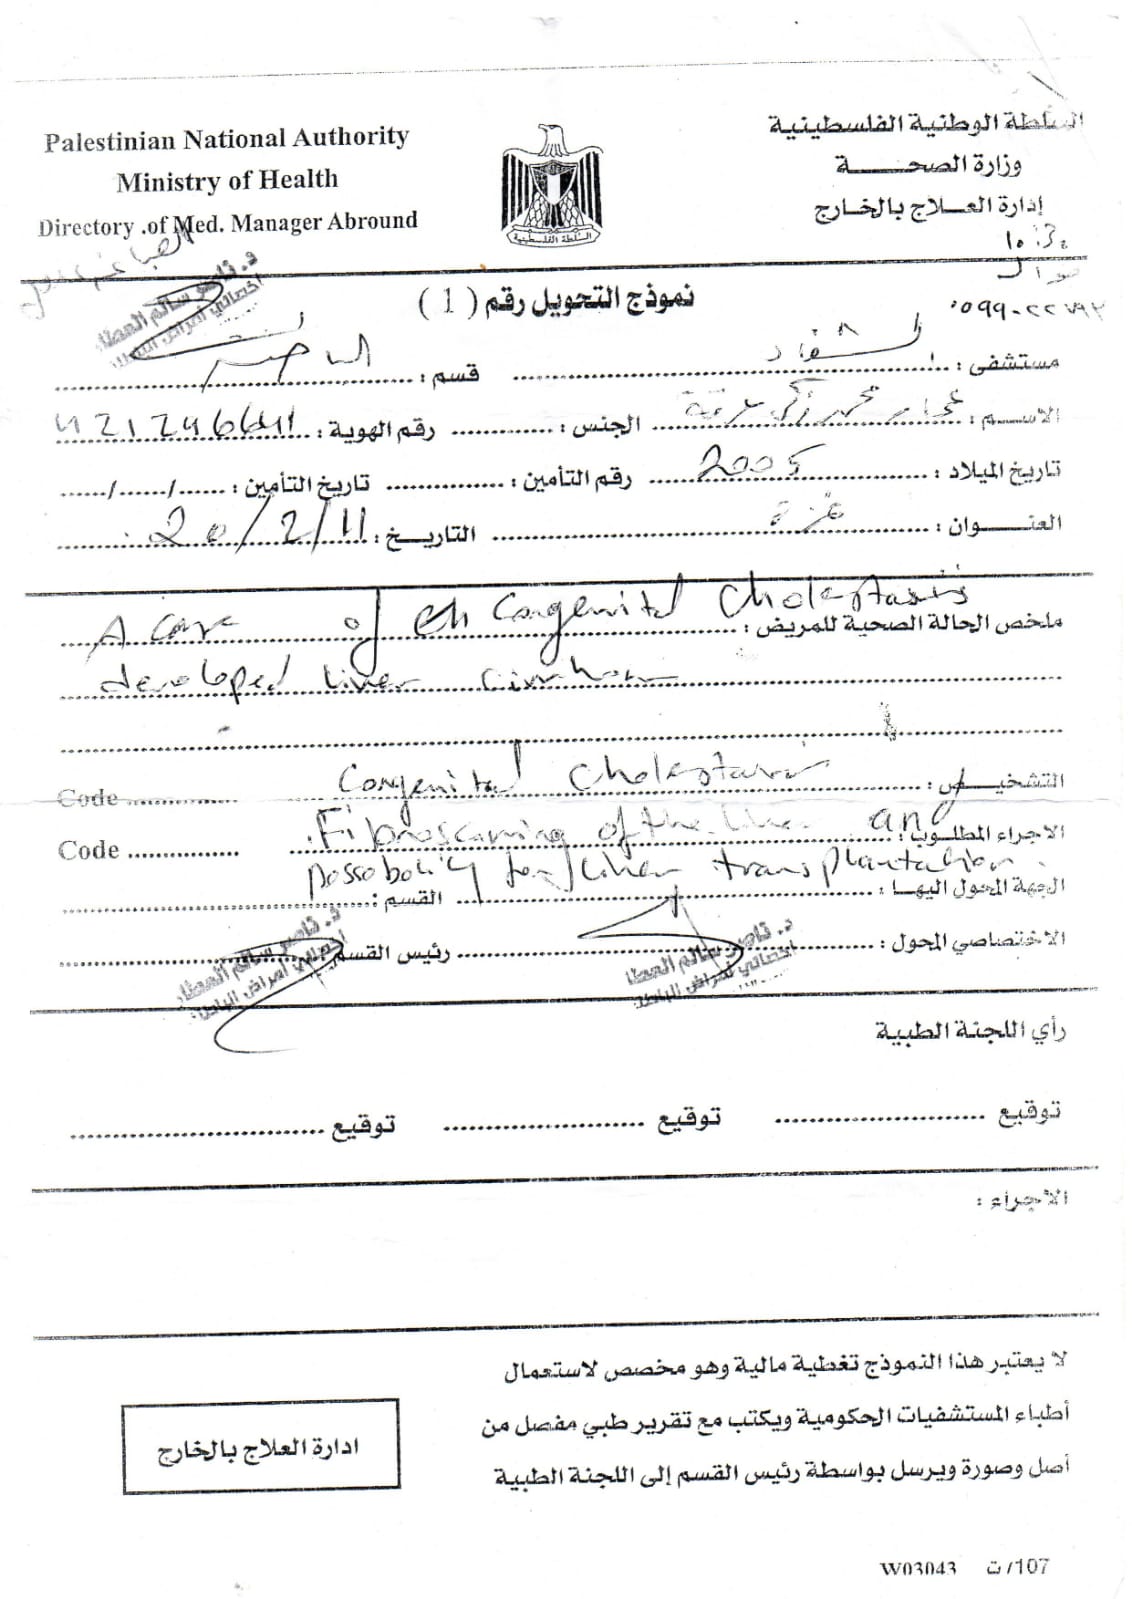 Palestinian National Authority
Ministry of Health
Directory .of Med. Manager Abround
السلطة الوطنية الفلسطينية
وزارة الصحـــــة
إدارة العـــلاج بالخارج
السلطة الفلسطينية
جوال
د. ناصر سالم العطار
أخصائي أمراض الباطنة
نموذج التحويل رقم ( 1 )
مستشفى : الشفاء قسم : الباطنة
الاســـم : محمد زكي الجنس : رقم الهوية : 421246641
تاريخ الميلاد : 2005 رقم التأمين : تاريخ التأمين : ....../....../......
العنـــــوان : غزة التاريـــخ : 20/2/11
ملخص الحالة الصحية للمريض : A case of Congenital Cholestasis
developed liver cirrhosis
التشخيـص : Congenital Cholestasis Code
الاجراء المطلوب : Fibroscanning of the liver and Code
possobolity for liver transplantation.
الجهة المحول اليهـا : القسم :
الاختصاصي المحول : رئيس القسم
د. ناصر سالم العطار
أخصائي أمراض الباطنة
د. ناصر سالم العطار
أخصائي أمراض الباطنة
رأي اللجنة الطبية
توقيع توقيع توقيع
الاجراء :
لا يعتبر هذا النموذج تغطية مالية وهو مخصص لاستعمال
أطباء المستشفيات الحكومية ويكتب مع تقرير طبي مفصل من
أصل وصورة ويرسل بواسطة رئيس القسم إلى اللجنة الطبية
ادارة العلاج بالخارج
W03043 ت /107